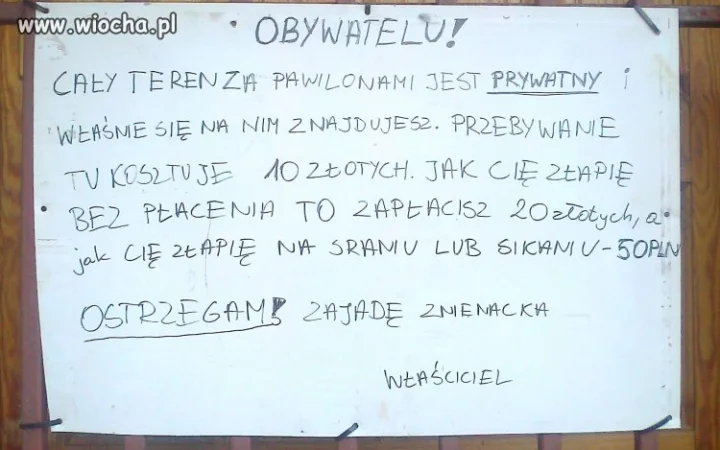 www.wiocha.pl
OBYWATELU!
CAŁY TEREN ZA PAWILONAMI JEST PRYWATNY i
WŁAŚNIE SIĘ NA NIM ZNAJDUJESZ. PRZEBYWANIE
TU KOSZTUJE 10 ZŁOTYCH. JAK CIĘ ZŁAPIĘ
BEZ PŁACENIA TO ZAPŁACISZ 20 złotych, a
jak CIĘ ZŁAPIĘ NA SRANIU LUB SIKANIU - 50 PLN
OSTRZEGAM! ZAJADĘ ZNIENACKA
WŁAŚCICIEL